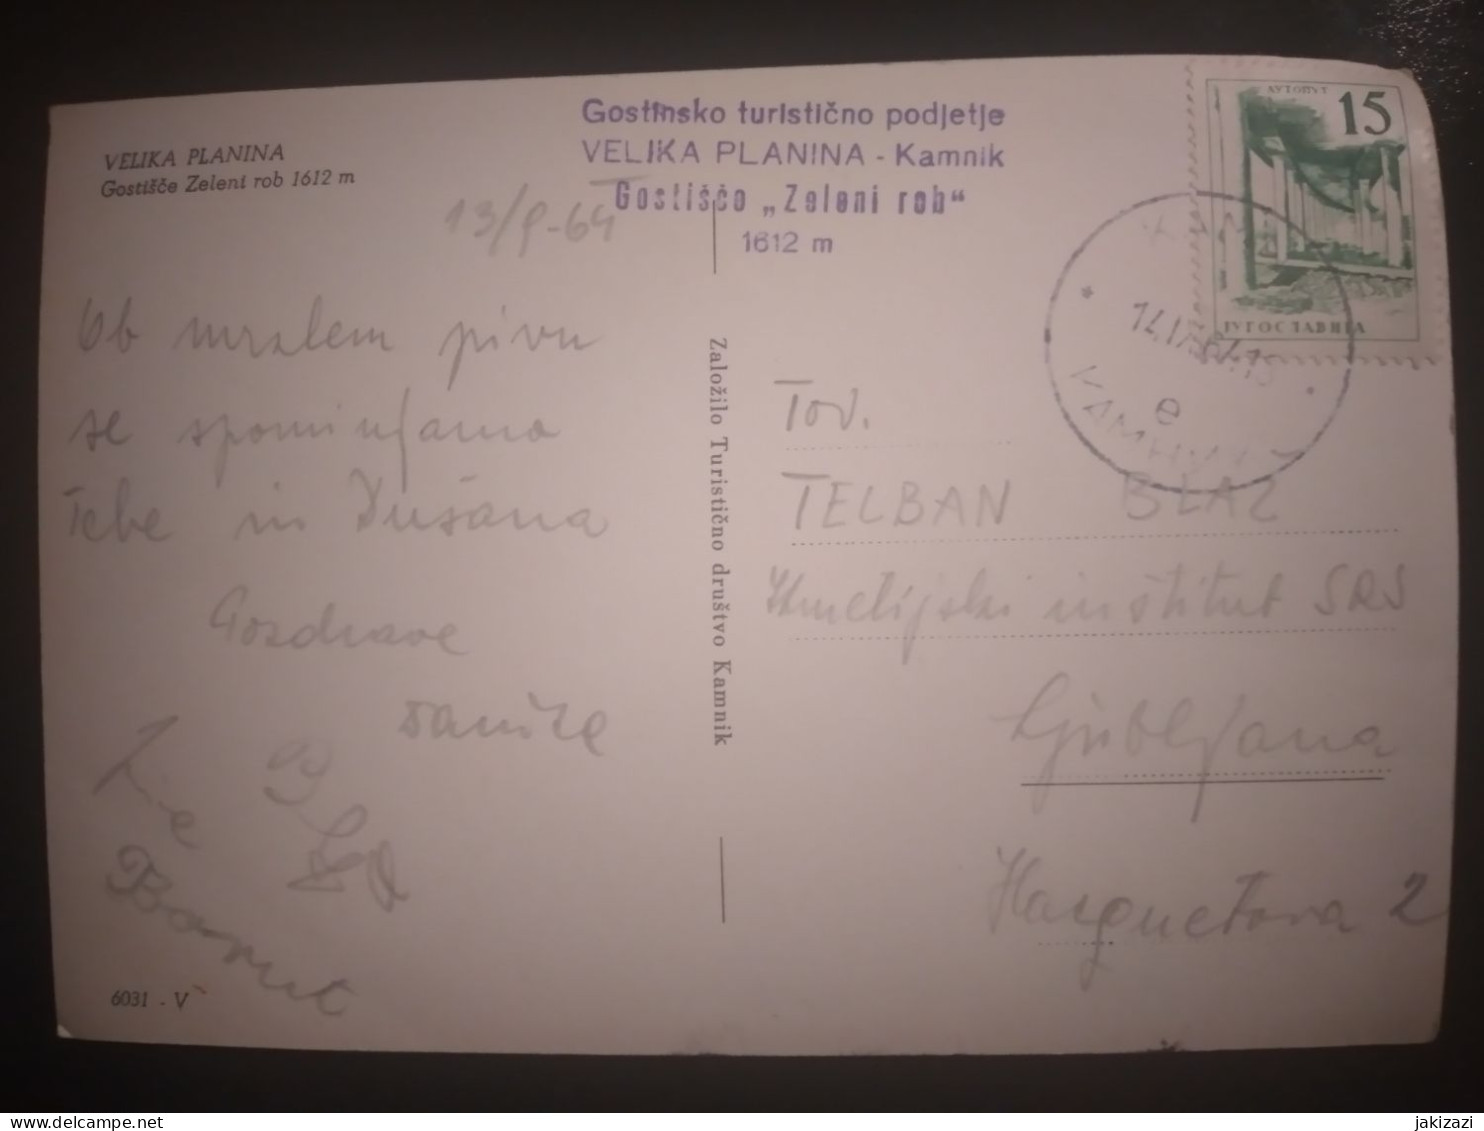 VELIKA PLANINA
Gostišče Zeleni rob 1612 m
Gostinsko turistično podjetje
VELIKA PLANINA - Kamnik
Gostišče „Zeleni rob“
1612 m
АУТОПУТ
15
ЈУГОСЛАВИЈА
e
13/9-64
Ob mrzlem pivu
se spominjamo
Tebe in Dušana
Pozdrave
Borut
6031 - V
Založilo Turistično društvo Kamnik
Tov.
TELBAN BLAŽ
Kmetijski inštitut SRS
Ljubljana
Hacquetova 2
delcampe.net
jakizazi